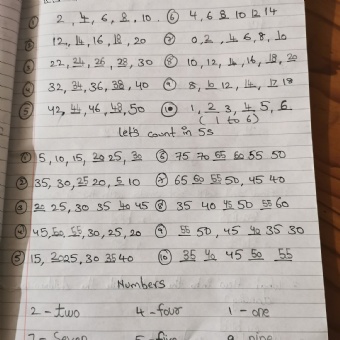 ① 2, 4, 6, 8, 10. ⑥ 4, 6 8 10 12 14
② 12, 14, 16, 18, 20 ⑦ 0, 2, 4 6, 8, 10
③ 22, 24, 26, 28, 30 ⑧ 10, 12, 14, 16, 18, 20
④ 32, 34, 36, 38, 40 ⑨ 8, 10 12, 14, 18
⑤ 42, 44, 46, 48, 50 ⑩ 1, 2 3, 4, 5, 6
(1 to 6)
let's count in 5s
① 5, 10, 15, 20 25, 30 ⑥ 75 70 55 60 55 50
② 35, 30, 25 20, 5 10 ⑦ 65 50, 45 40
③ 20 25, 30 35 40 45 ⑧ 35 40 45 50 55 60
④ 45, 30, 25, 20 ⑨ 55 50, 45 40 35 30
⑤ 15, 20 25, 30 35 40 ⑩ 35 40 45 50 55
Numbers
2 - two 4 - four 1 - one
7 - Seven 5 - five 9 nine